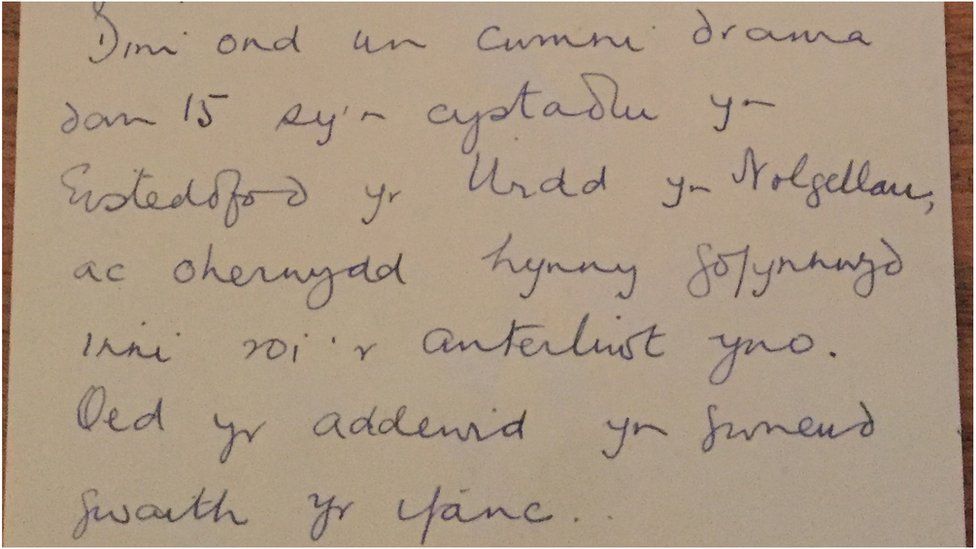 Dim ond un cwmni drama
dan 15 sy'n cystadlu yn
Eisteddfod yr Urdd yn Nolgellau,
ac oherwydd hynny gofynnwyd
inni roi'r anterliwt yno.
Oed yr addewid yn gwneud
gwaith yr ifanc..